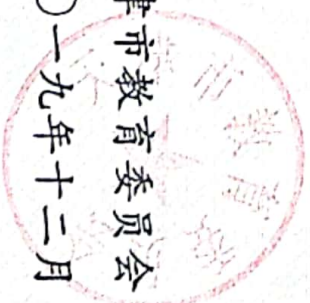 津市教育委员会
〇一九年十二月